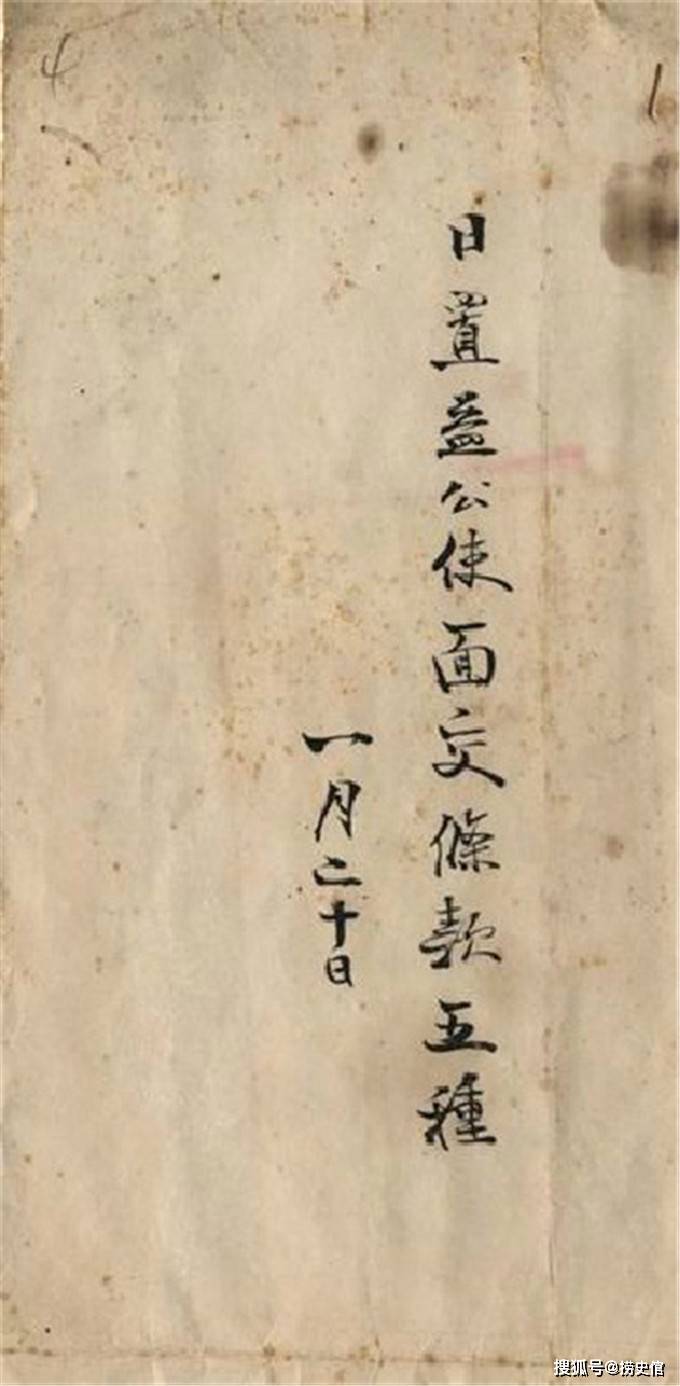 日置益公使面交條款五種
一月二十日
4
1
搜狐号@捞史官